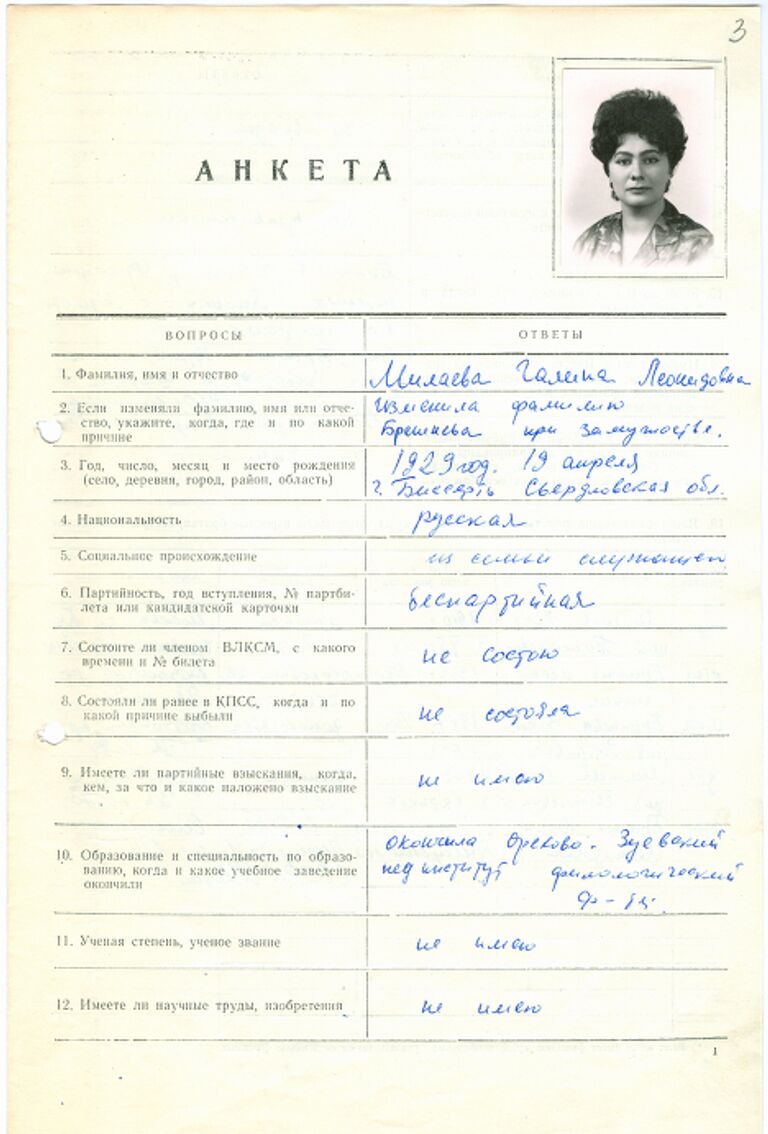 3
АНКЕТА
ВОПРОСЫ
ОТВЕТЫ
1. Фамилия, имя и отчество
Милаева Галина Леонидовна
2. Если изменяли фамилию, имя или отче-
ство, укажите, когда, где и по какой
причине
Изменила фамилию
Брежнева при замужестве.
3. Год, число, месяц и место рождения
(село, деревня, город, район, область)
1929 год. 19 апреля
г. Бисерть Свердловская обл.
4. Национальность
русская
5. Социальное происхождение
из семьи служащего
6. Партийность, год вступления, № партби-
лета или кандидатской карточки
беспартийная
7. Состоите ли членом ВЛКСМ, с какого
времени и № билета
не состою
8. Состояли ли ранее в КПСС, когда и по
какой причине выбыли
не состояла
9. Имеете ли партийные взыскания, когда,
кем, за что и какое наложено взыскание
не имею
10. Образование и специальность по образо-
ванию, когда и какое учебное заведение
окончили
окончила Орехово-Зуевский
пединститут филологический
ф-т
11. Ученая степень, ученое звание
не имею
12. Имеете ли научные труды, изобретения
не имею
1